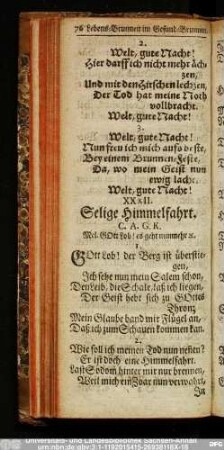 76 Lebens-Brunnen im Gesund-Brunnen.
2.
Welt, gute Nacht!
Hier darff ich nicht mehr äch-
zen,
Und mit den Hirschen lechzen,
Der Tod hat meine Noth
vollbracht.
Welt, gute Nacht!
3.
Welt, gute Nacht!
Nun freu ich mich aufs beste,
Bey einem Brunnen-Feste,
Da, wo mein Geist nun
ewig lacht.
Welt, gute Nacht!
XXXII.
Selige Himmelfahrt.
C. A. G. K.
Mel. GOtt Lob! es geht nunmehr ꝛc.
1.
GOtt Lob! der Berg ist überstie-
gen,
Ich sehe nun mein Salem schon,
Den Leib, die Schale, laß ich liegen,
Der Geist hebt sich zu GOttes
Thron;
Mein Glaube band mir Flügel an,
Daß ich zum Schauen kommen kan.
2.
Wie soll ich meinen Tod nun nennen?
Er ist doch eine Himmelfahrt.
Laß Sodom hinter mir nur brennen,
Weil mich ein Zoar nun verwahrt,
In
Universitäts- und Landesbibliothek Sachsen-Anhalt
urn:nbn:de:gbv:3:1-1192015415-26938116X-18
DFG